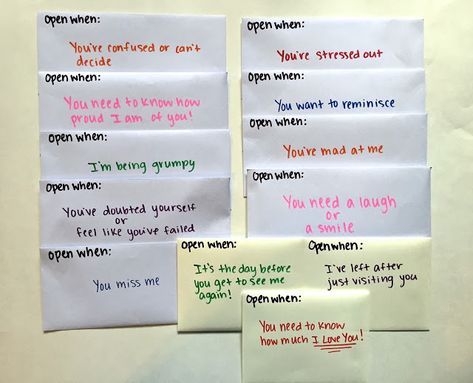 Open when:
You're confused or can't
decide
Open when:
You need to know how
proud I am of you!
Open when:
I'm being grumpy
Open when:
You've doubted yourself
or
feel like you've failed
Open when:
You miss me
Open when:
You're stressed out
Open when:
You want to reminisce
Open when:
You're mad at me
Open when:
You need a laugh
or
a smile
Open when:
It's the day before
you get to see me
again!
Open when:
I've left after
just visiting you
Open when:
You need to know
how much I Love You!